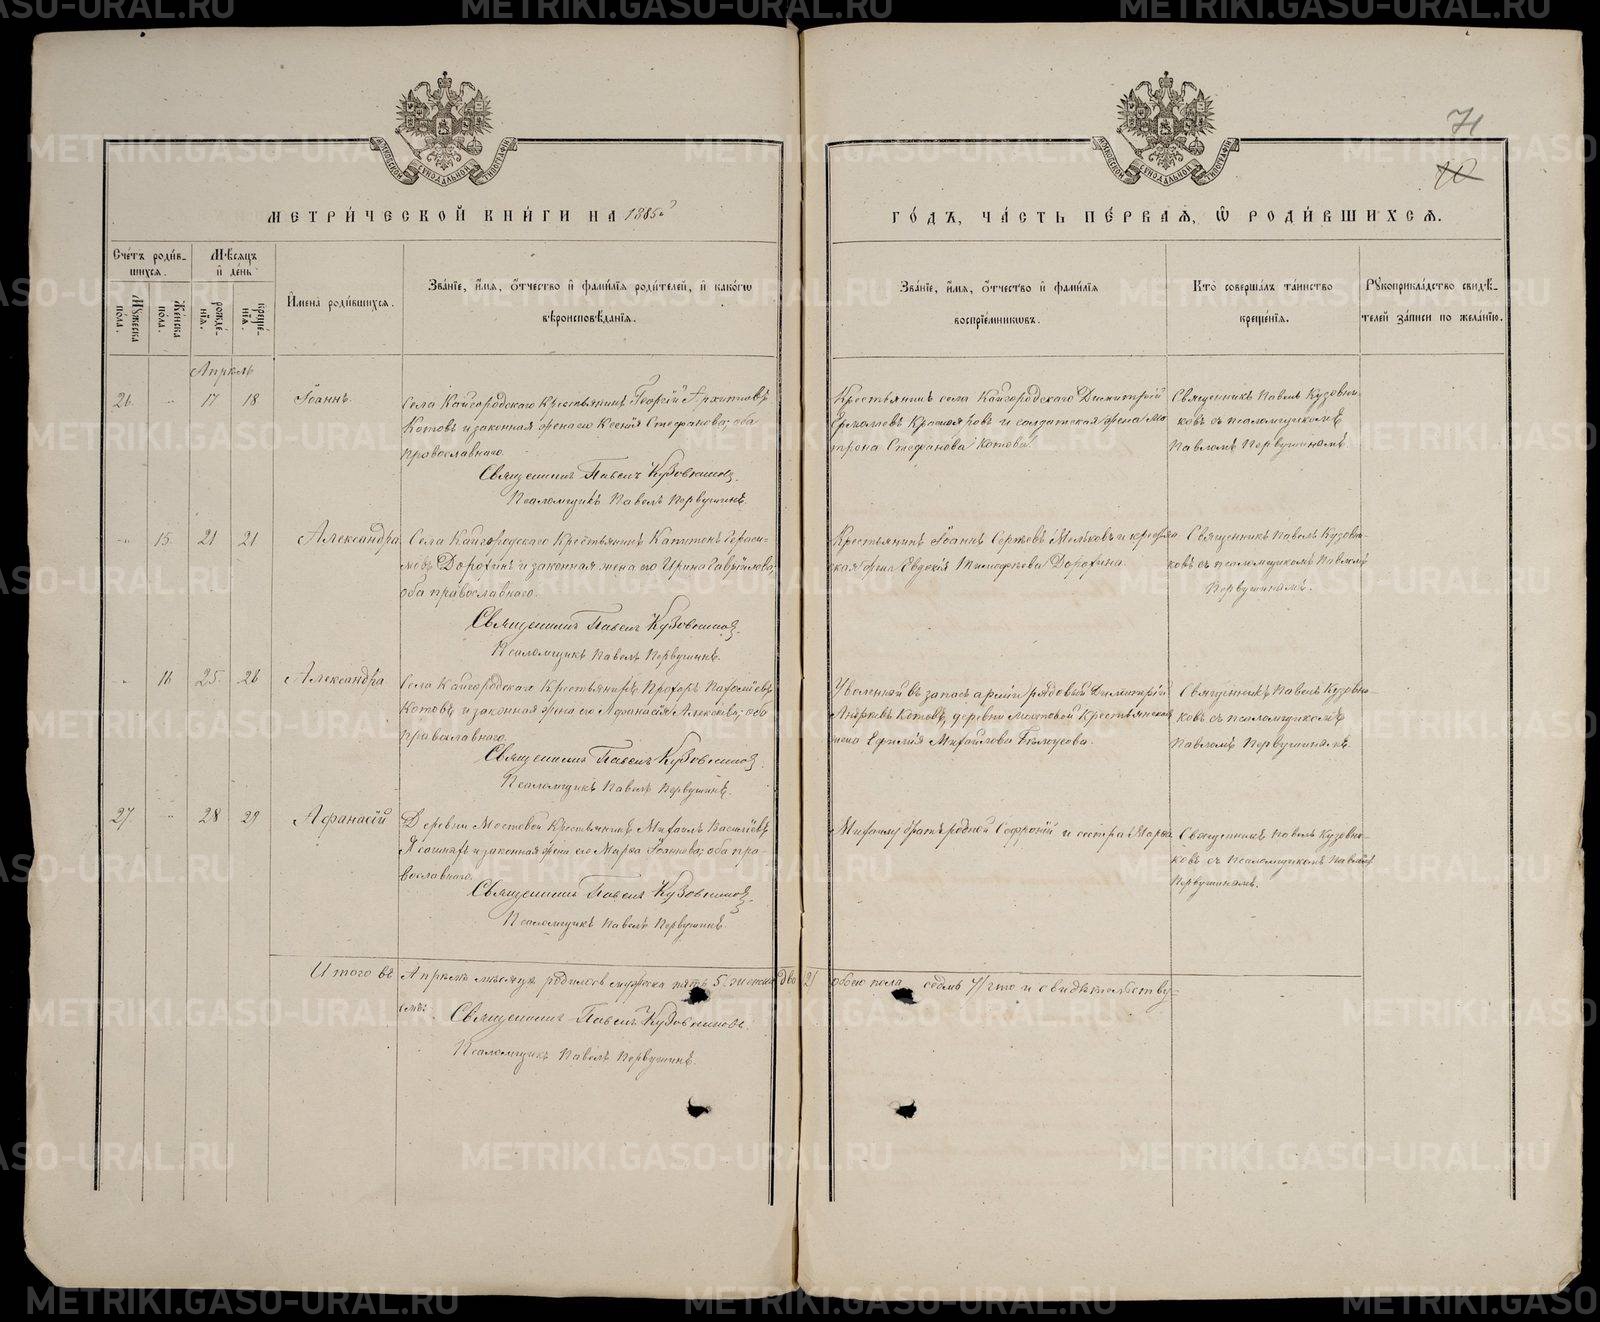 METRIKI.GASO-URAL.RU
71
10
МЕТРИ́ЧЕСКОЙ КНИ́ГИ НА 1885й
ГО́ДЪ, ЧА́СТЬ ПЕ́РВАЯ, Ѽ РОДИ́ВШИХСЯ.
Сче́тъ роди́в-
шихся.
Мѣ́сяцъ
и де́нь
Мꙋ́жеска пола.
Же́нска пола.
рожде́-
нїя.
креще́-
нїя.
И҆мена̀ роди́вшихся.
Зва́нїе, и҆́мя, ѻ҆́тчество и҆ фами́лїя роди́телей, и҆ како́гѡ
вѣроисповѣ́данїя.
Зва́нїе, и҆́мя, ѻ҆́тчество и҆ фами́лїя
воспрїе́мникѡвъ.
Кто̀ соверша́лъ та́инство
креще́нїя.
Рꙋкоприкла́дство свидѣ́-
телей за́писи по жела́нїю.
Апрель
26. " 17 18 Іоаннъ.
Села Кайгородскаго Крестьянинъ Георгій Архиповъ
Котовъ и законная жена его Ксенія Стефанова; оба
православнаго.
Священникъ Павелъ Кузовниковъ.
Псаломщикъ Павелъ Первушинъ.
Крестьянинъ села Кайгородскаго Димитрій
Ермолаевъ Краснояровъ и солдатская жена Ма-
трона Стефанова Котова.
Священникъ Павелъ Кузовни-
ковъ съ псаломщикомъ
Павломъ Первушинымъ.
" 15. 21 21 Александра
Села Кайгородскаго Крестьянинъ Капитонъ Гераси-
мовъ Дорофинъ и законная жена его Ирина Гавріилова;
оба православнаго.
Священникъ Павелъ Кузовниковъ.
Псаломщикъ Павелъ Первушинъ.
Крестьянинъ Іоаннъ Сергѣевъ
ская жена Евдокія Тимофеева Дорофина.
Священникъ Павелъ Кузовни-
ковъ съ псаломщикомъ Павломъ
Первушинымъ.
" 16 25 26 Александра
Села Кайгородскаго Крестьянинъ Прохоръ
Котовъ и законная жена его Афанасія Алексіева; оба
православнаго.
Священникъ Павелъ Кузовниковъ.
Псаломщикъ Павелъ Первушинъ.
Уволенный въ запасъ арміи рядовый Димитрій
Андреевъ Котовъ, деревни Мостовой Крестьянская
жена Ефимія Михаилова Белоусова.
Священникъ Павелъ Кузовни-
ковъ съ псаломщикомъ
Павломъ Первушинымъ.
27. " 28 29 Афанасій
Деревни Мостовой Крестьянинъ Михаилъ Василіевъ
и законная жена его Марѳа Іоаннова; оба пра-
вославнаго.
Священникъ Павелъ Кузовниковъ.
Псаломщикъ Павелъ Первушинъ.
Михаилу братъ родной Софроній и сестра Марѳа
Священникъ Павелъ Кузовни-
ковъ съ Псаломщикомъ Павломъ
Первушинымъ.
Итого въ Апреле месяце родилось мужеска пять 5. женска два 2/ обоего пола седмь 7/ что и свидетельству-
емъ:
Священникъ Павелъ Кузовниковъ.
Псаломщикъ Павелъ Первушинъ.